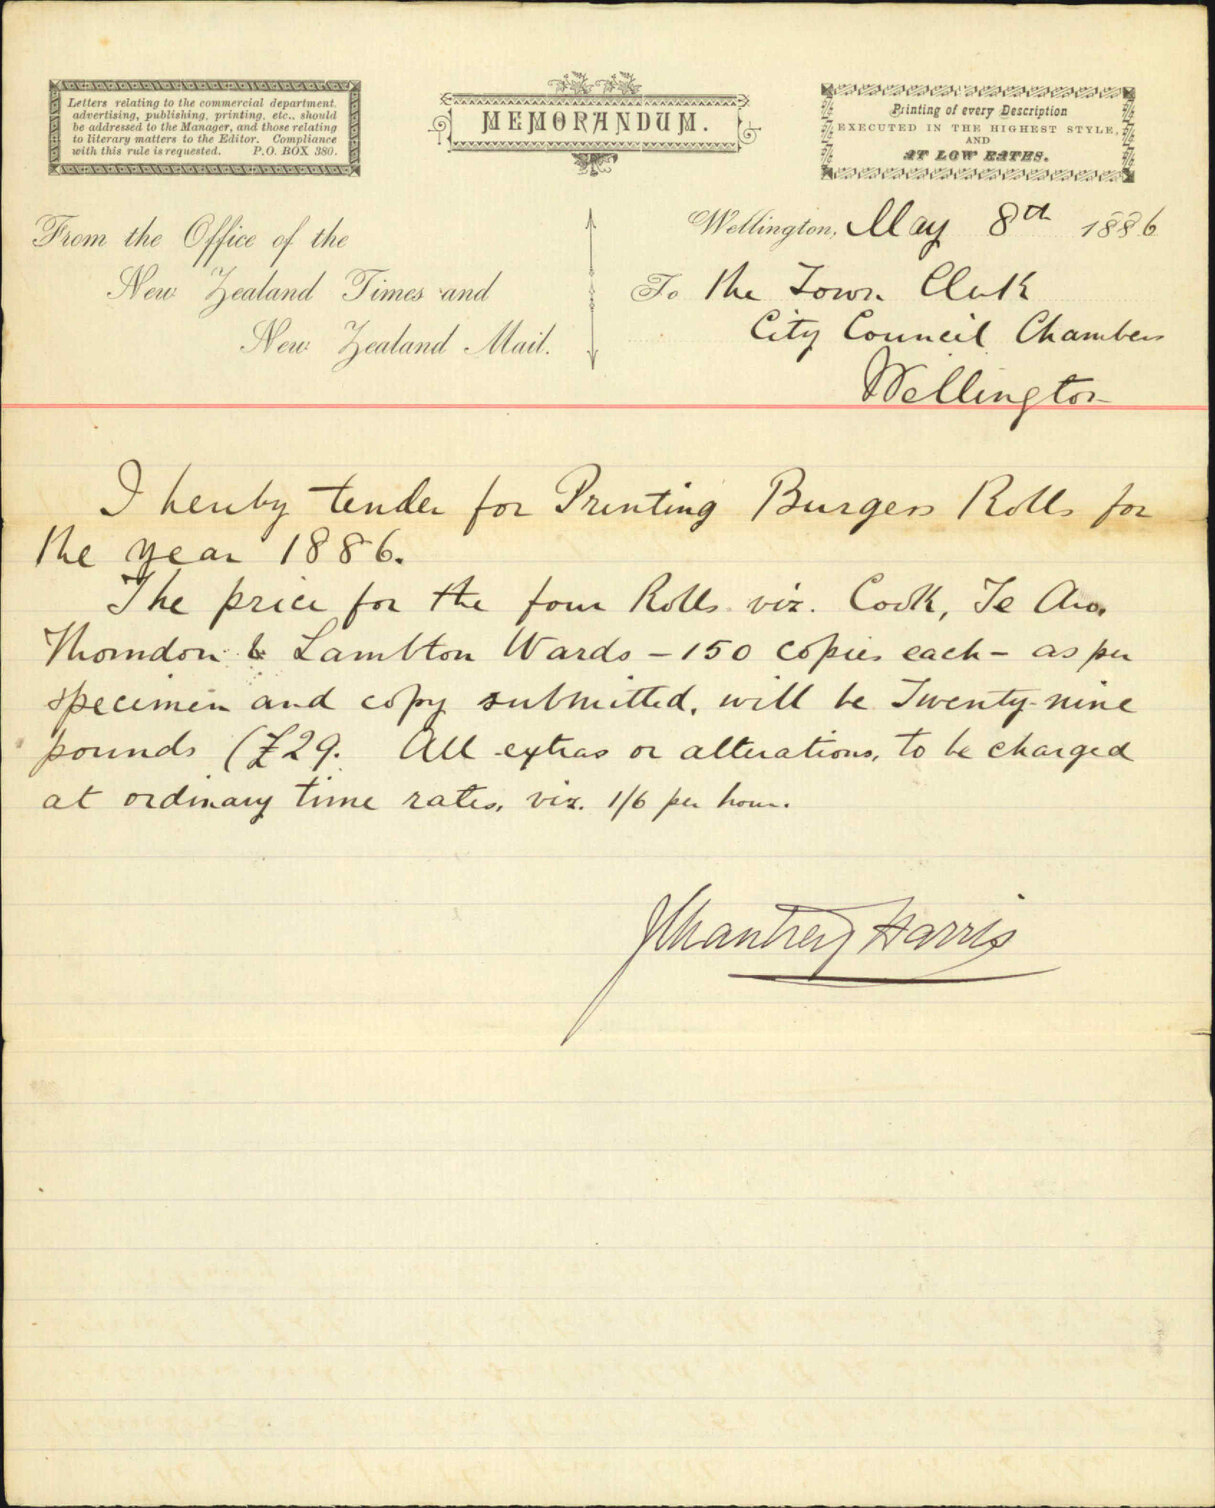 Letters relating to the commercial department,
advertising, publishing, printing, etc., should
be addressed to the Manager, and those relating
to literary matters to the Editor. Compliance
with this rule is requested. P.O. BOX 380.
MEMORANDUM.
Printing of every Description
EXECUTED IN THE HIGHEST STYLE,
AND
AT LOW RATES.
From the Office of the
New Zealand Times and
New Zealand Mail.
Wellington, May 8th 1886
To the Town Clerk
City Council Chambers
Wellington
I hereby tender for Printing Burgess Rolls for
the year 1886.
The price for the four Rolls viz. Cook, Te Aro,
Thorndon & Lambton Wards – 150 copies each – as per
specimen and copy submitted, will be Twenty-nine
pounds (£29. All extras or alterations, to be charged
at ordinary time rates, viz. 1/6 per hour.
J Chantrey Harris